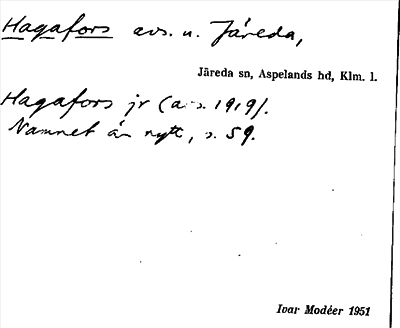 Hagafors avs. u. Järeda,
Järeda sn, Aspelands hd, Klm. l.
Hagafors jr (a. s. 1919).
Namnet är nytt, s. 59.
Ivar Modéer 1951